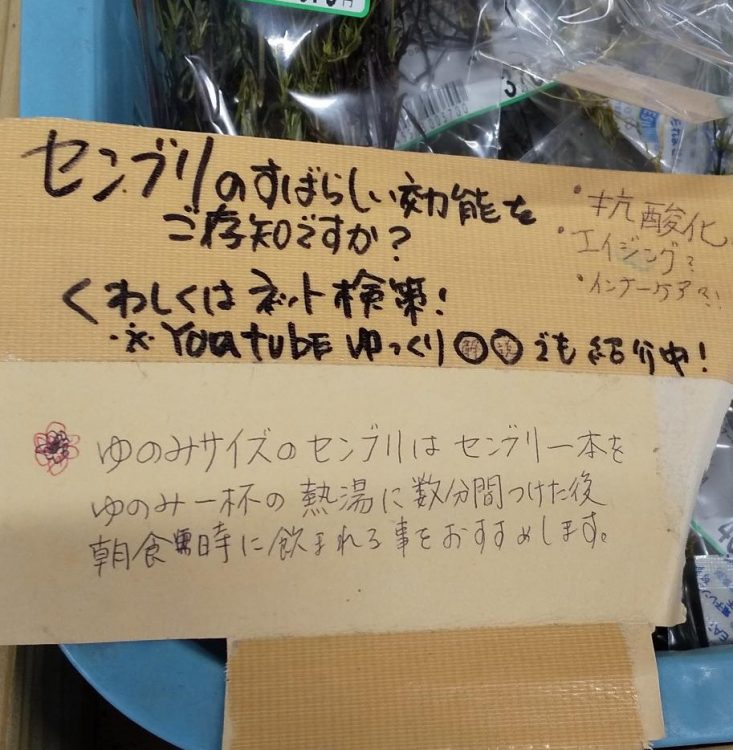 センブリのすばらしい効能を
ご存知ですか？
・抗酸化
・エイジング？
・インナーケア？！
くわしくはネット検索！
※YouTubEゆっくり解説でも紹介中！
ゆのみサイズのセンブリはセンブリ一本を
ゆのみ一杯の熱湯に数分間つけた後
朝食時に飲まれる事をおすすめします。